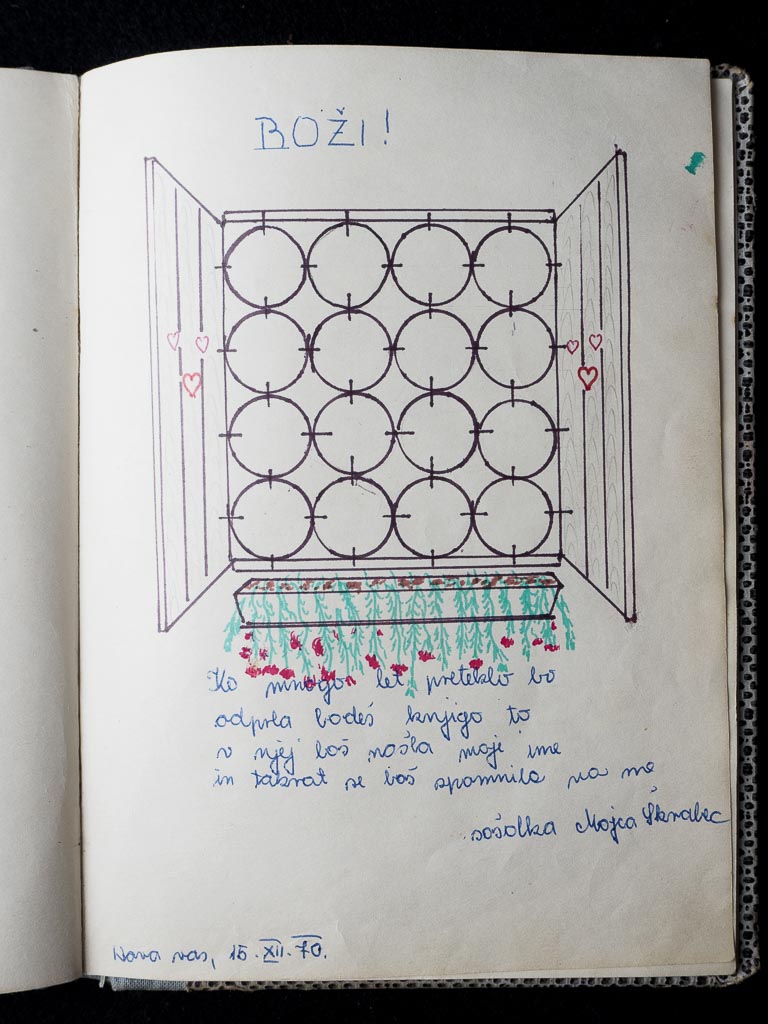 BOŽI!
Ko mnogo let preteklo bo
odprla bodeš knjigo to
v njej boš nošla moje ime
in takrat se boš spomnila na me
sošolka Mojca Škrabec
Nova vas, 15. XII. 70.